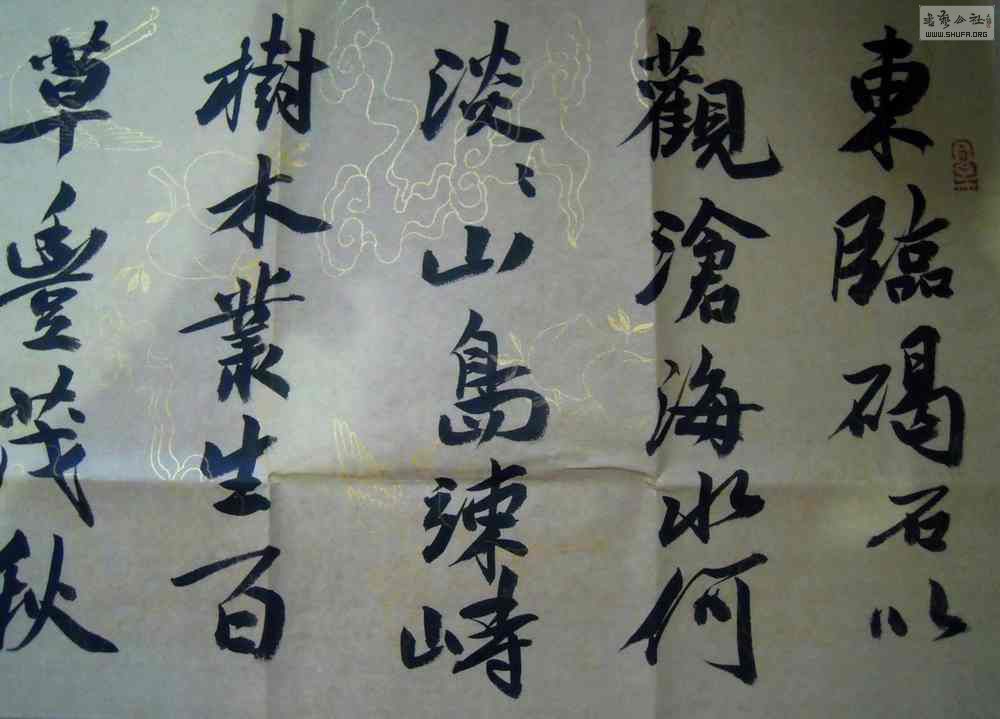 東臨碣石以
觀滄海水何
淡〻山島竦峙
樹木叢生百
草豐茂秋
書藝公社
WWW.SHUFA.ORG